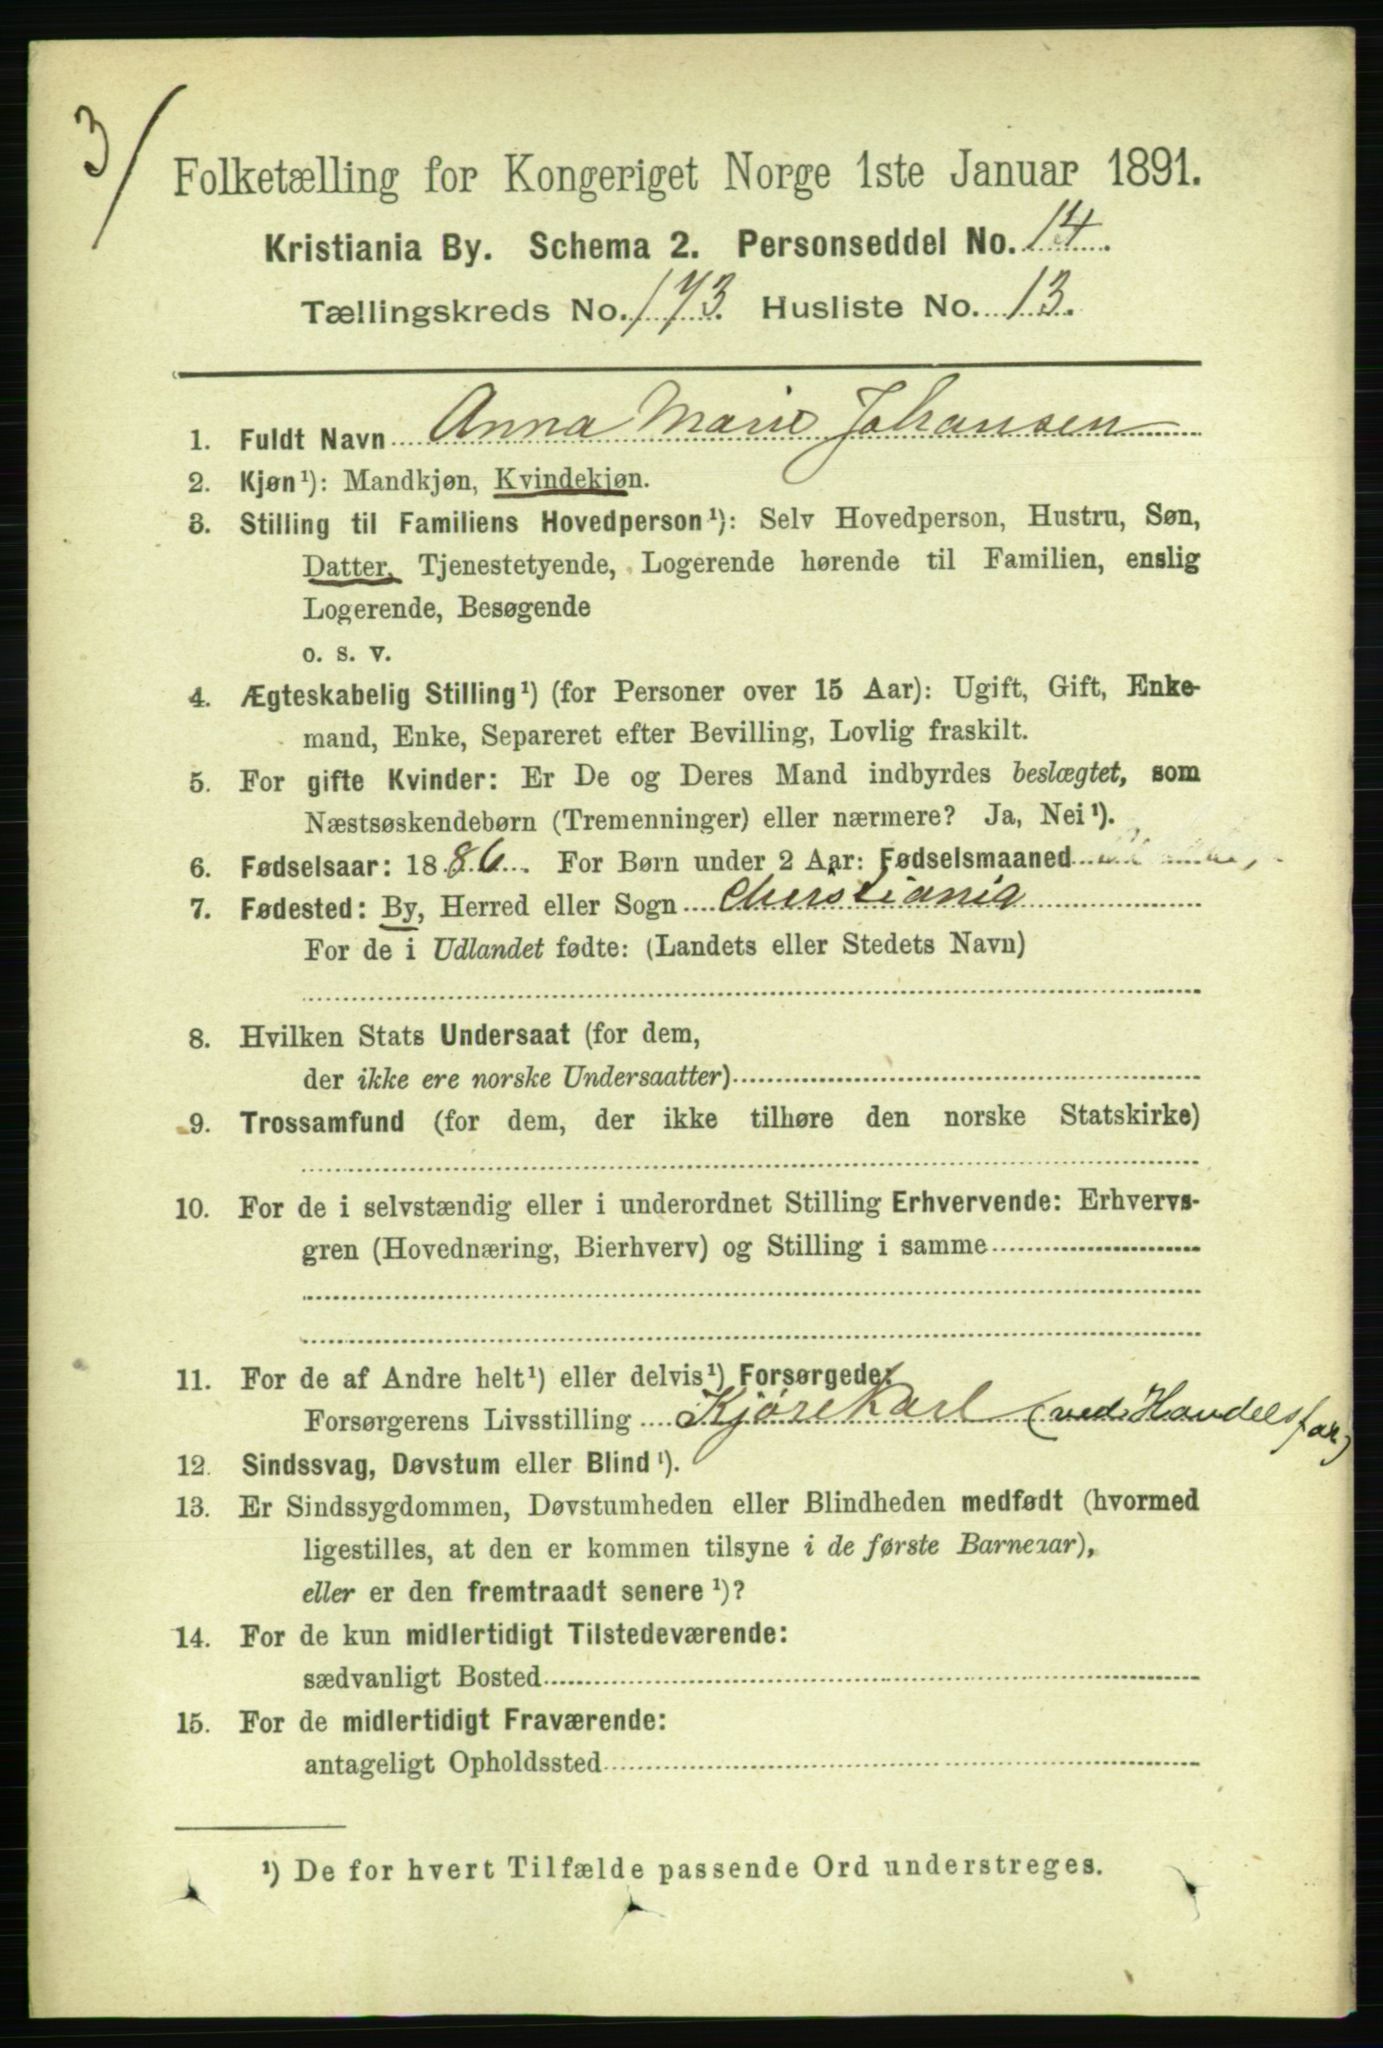 3/
Folketælling for Kongeriget Norge 1ste Januar 1891.
Kristiania By. Schema 2. Personseddel No. 14.
Tællingskreds No. 173. Husliste No. 13.
1. Fuldt Navn Anna Marie Johansen
2. Kjøn¹): Mandkjøn, Kvindekjøn.
3. Stilling til Familiens Hovedperson¹): Selv Hovedperson, Hustru, Søn,
Datter, Tjenestetyende, Logerende hørende til Familien, enslig
Logerende, Besøgende
o. s. v.
4. Ægteskabelig Stilling¹) (for Personer over 15 Aar): Ugift, Gift, Enke-
mand, Enke, Separeret efter Bevilling, Lovlig fraskilt.
5. For gifte Kvinder: Er De og Deres Mand indbyrdes beslægtet, som
Næstsøskendebørn (Tremenninger) eller nærmere? Ja, Nei¹).
6. Fødselsaar: 1886. For Børn under 2 Aar: Fødselsmaaned
7. Fødested: By, Herred eller Sogn Christiania
For de i Udlandet fødte: (Landets eller Stedets Navn)
8. Hvilken Stats Undersaat (for dem,
der ikke ere norske Undersaatter)
9. Trossamfund (for dem, der ikke tilhøre den norske Statskirke)
10. For de i selvstændig eller i underordnet Stilling Erhvervende: Erhvervs-
gren (Hovednæring, Bierhverv) og Stilling i samme
11. For de af Andre helt¹) eller delvis¹) Forsørgede:
Forsørgerens Livsstilling Kjørekarl (ved Handelsfor)
12. Sindssvag, Døvstum eller Blind¹).
13. Er Sindssygdommen, Døvstumheden eller Blindheden medfødt (hvormed
ligestilles, at den er kommen tilsyne i de første Barneaar),
eller er den fremtraadt senere¹)?
14. For de kun midlertidigt Tilstedeværende:
sædvanligt Bosted
15. For de midlertidigt Fraværende:
antageligt Opholdssted
¹) De for hvert Tilfælde passende Ord understreges.